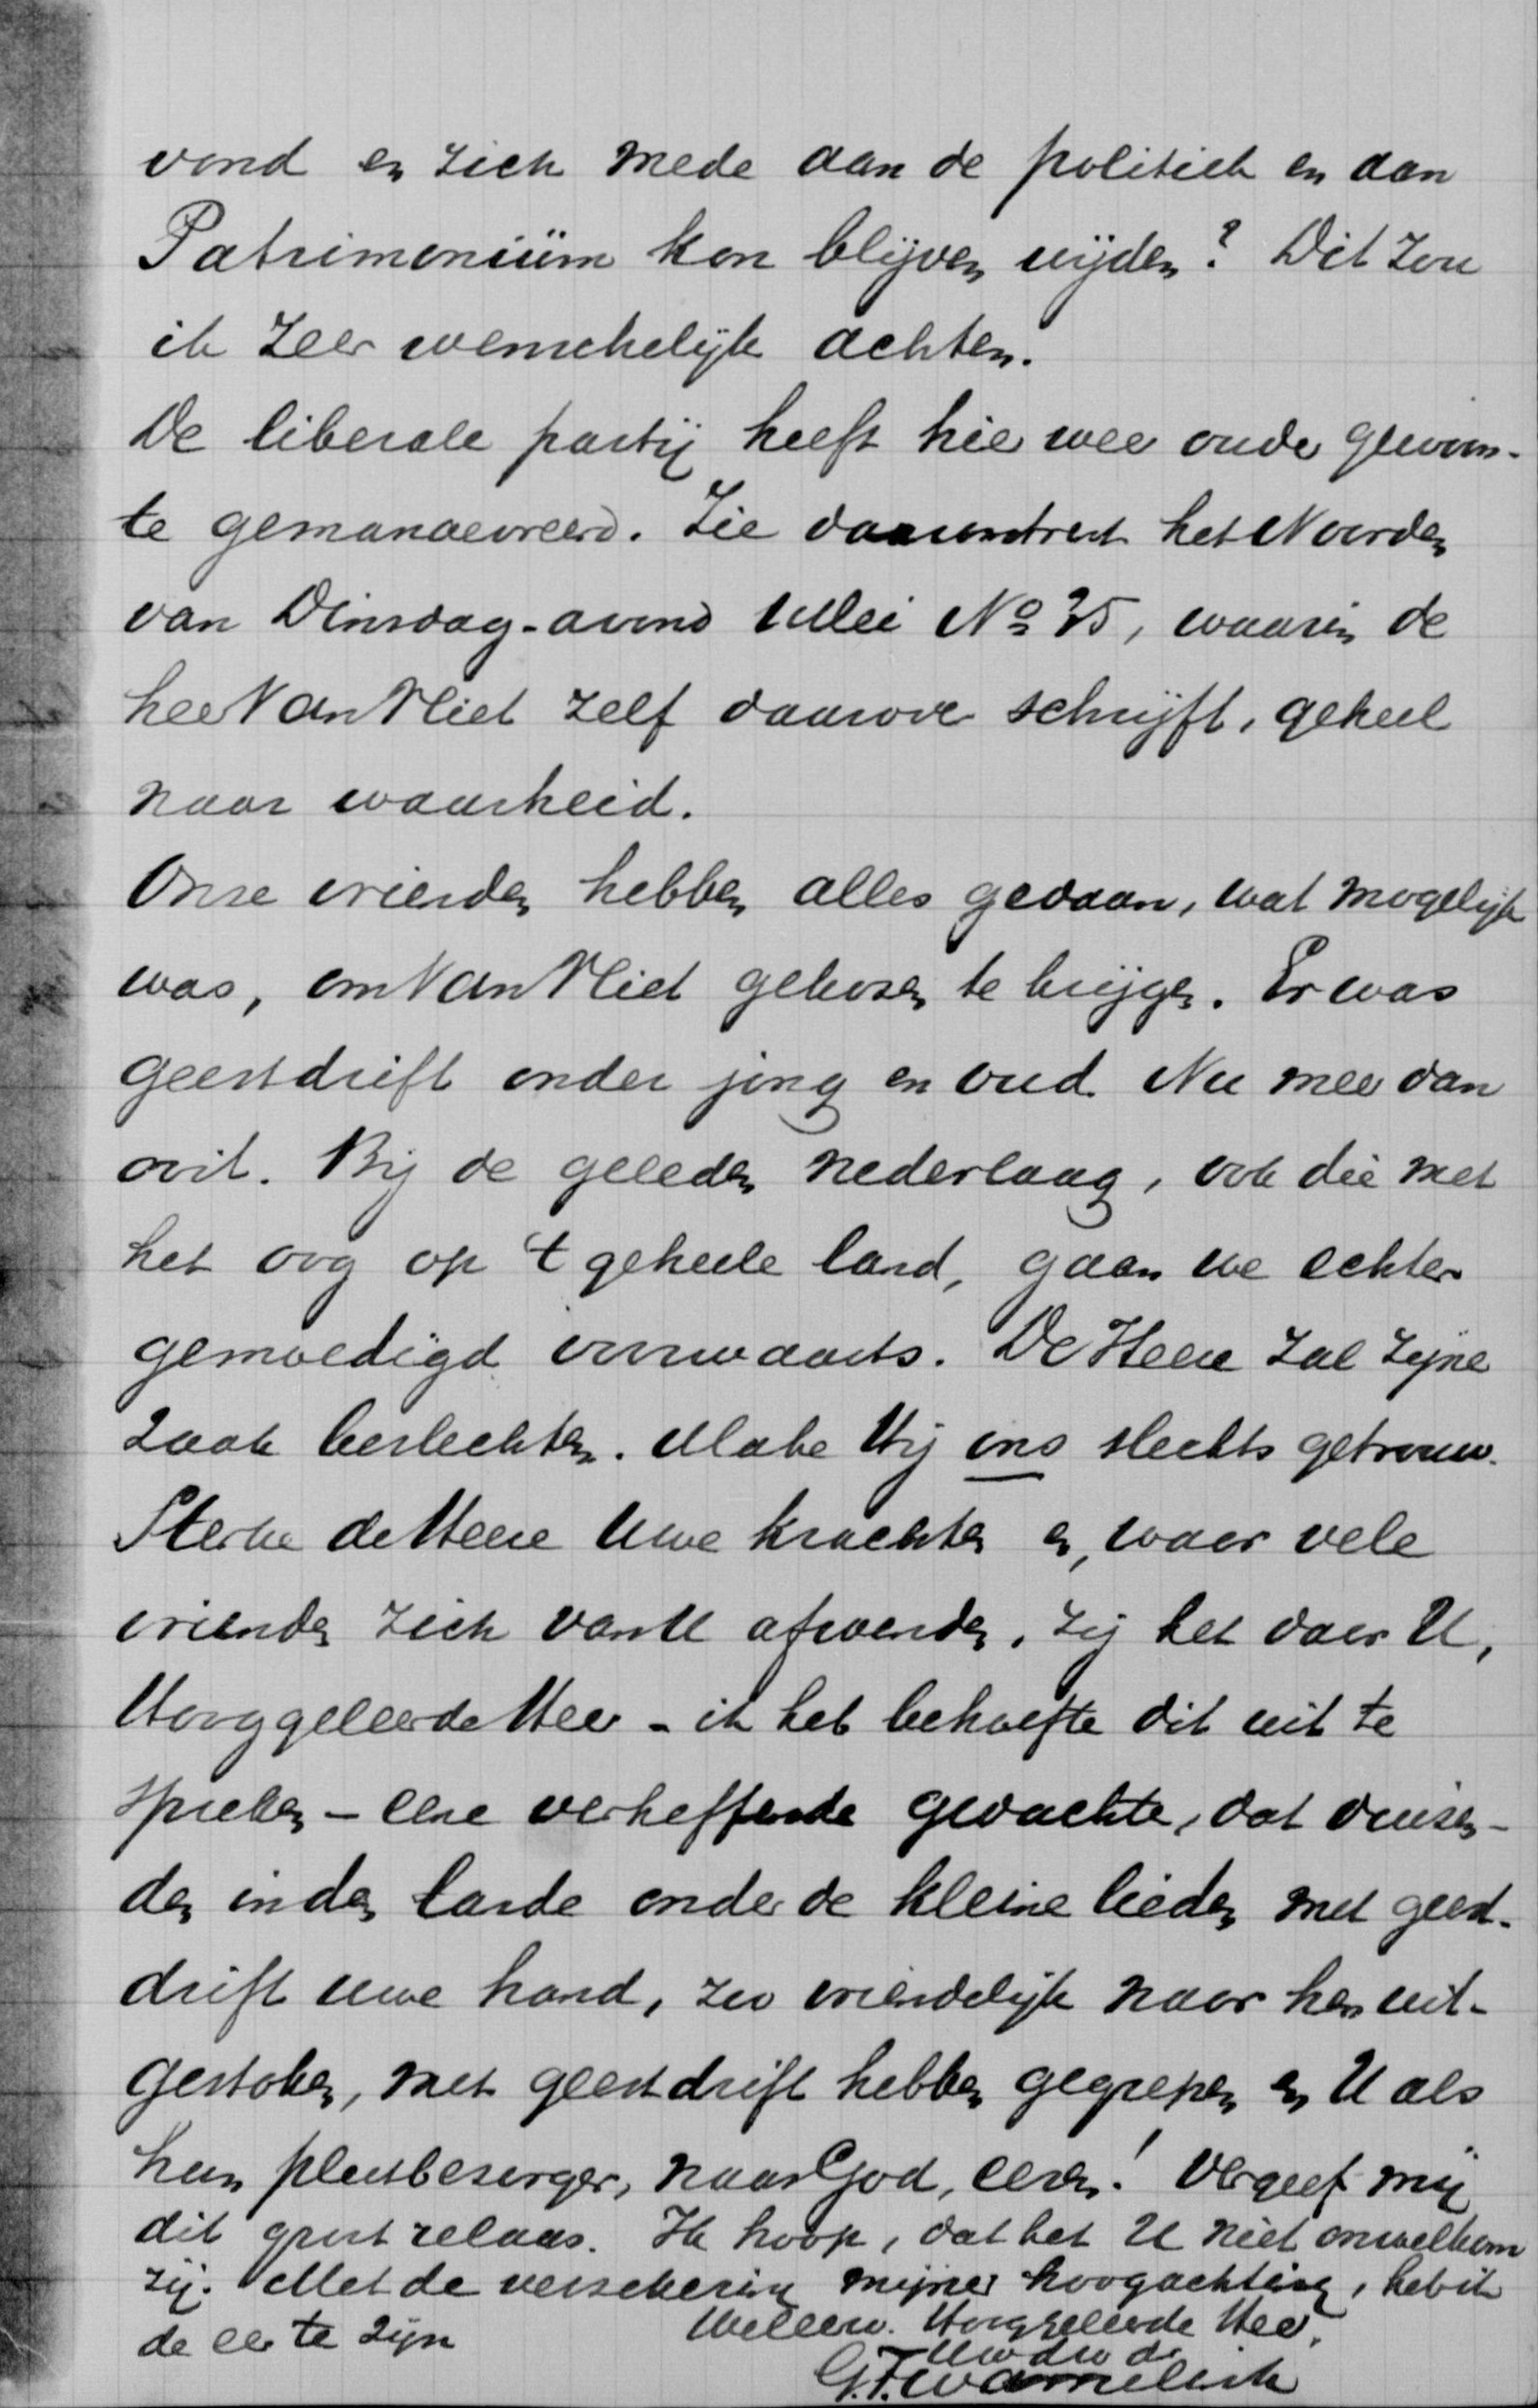 vond en zich mede aan de politiek en aan
Patrimonium kon blijven wijden? Dit zou
ik zeer wenschelijk achten.
De liberale partij heeft hier weer ouder gewoon-
te gemanoevreerd. Zie daaromtrent het Noorden
van Dinsdag-avond Mei No 25, waarin de
heer Van Vliet zelf daarover schrijft, geheel
naar waarheid.
Onze vrienden hebben alles gedaan, wat mogelijk
was, om Van Vliet gekozen te krijgen. Er was
geestdrift onder jong en oud. Nu meer dan
ooit. Bij de geleden nederlaag, ook die met
het oog op 't geheele land, gaan we echter
gemoedigd voorwaarts. De Heere zal Zijne
zaak beslechten. Make Hij ons slechts getrouw.
Sterke de Heere Uwe krachten en, waar vele
vrienden zich van U afwenden, zij het daar U,
Hooggeleerde Heer - ik heb behoefte dit uit te
spreken - eene verheffende gedachte, dat duizen-
den in den lande onder de kleine lieden met geest-
drift uwe hand, zoo vriendelijk naar hen uit-
gestoken, met geestdrift hebben gegrepen en U als
hun pleitbezorger, naast God, eeren! Vergeef mij
dit groot relaas. Ik hoop, dat het U niet onwelkom
zij. Met de verzekering mijner hoogachting, heb ik
de eer te zijn
Weleerw. Hooggeleerde Heer,
Uw dw dr
G.F. Wamelink